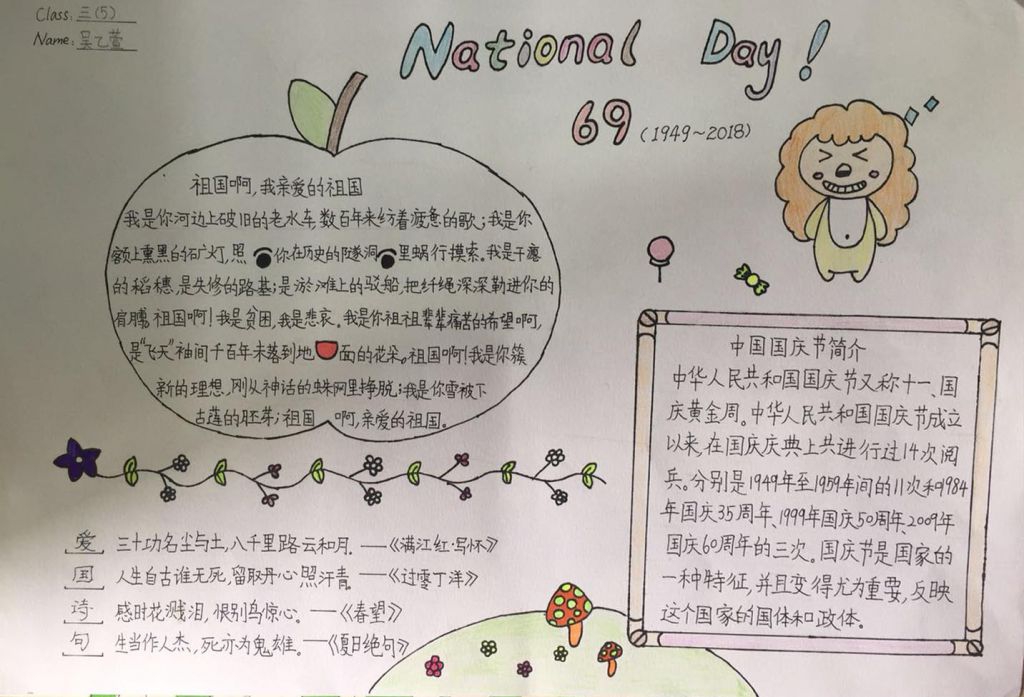 Class: 三(5)
Name: 吴乙萱
National Day!
69 (1949~2018)
祖国啊,我亲爱的祖国
我是你河边上破旧的老水车,数百年来纺着疲惫的歌;我是你
额上熏黑的矿灯,照你在历史的隧洞里蜗行摸索。我是干瘪
的稻穗,是失修的路基;是淤滩上的驳船,把纤绳深深勒进你的
肩膊,祖国啊!我是贫困,我是悲哀。我是你祖祖辈辈痛苦的希望啊,
是“飞天”袖间千百年未落到地面的花朵。祖国啊!我是你簇
新的理想,刚从神话的蛛网里挣脱;我是你雪被下
古莲的胚芽;祖国啊,亲爱的祖国。
中国国庆节简介
中华人民共和国国庆节又称十一、国
庆黄金周。中华人民共和国国庆节成立
以来,在国庆庆典上共进行过14次阅
兵。分别是1949年至1959年间的11次和1984
年国庆35周年、1999年国庆50周年、2009年
国庆60周年的三次。国庆节是国家的
一种特征,并且变得尤为重要,反映
这个国家的国体和政体。
爱 三十功名尘与土,八千里路云和月。——《满江红·写怀》
国 人生自古谁无死,留取丹心照汗青。——《过零丁洋》
诗 感时花溅泪,恨别鸟惊心。——《春望》
句 生当作人杰,死亦为鬼雄。——《夏日绝句》